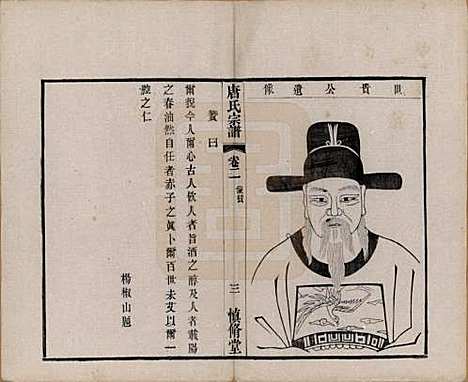 世貴公遺像
唐氏宗譜
卷二
像贊
三
慎脩堂
贊曰
爾挺今人爾心古人飲人者旨酒之醇及人者載陽
之春油然自任者赤子之眞卜爾百世未艾以爾一
腔之仁
楊椒山題